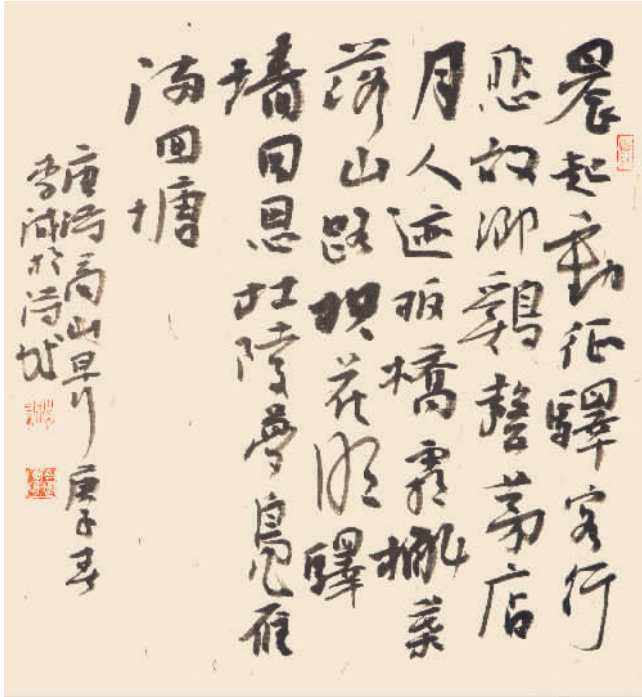 晨起動征驛客行
悲故鄉鷄聲茅店
月人迹板橋霜槲葉
落山路枳花明驛
墻因思杜陵夢鳧雁
滿回塘
唐詩商山早行 庚子春
李誠於詩城